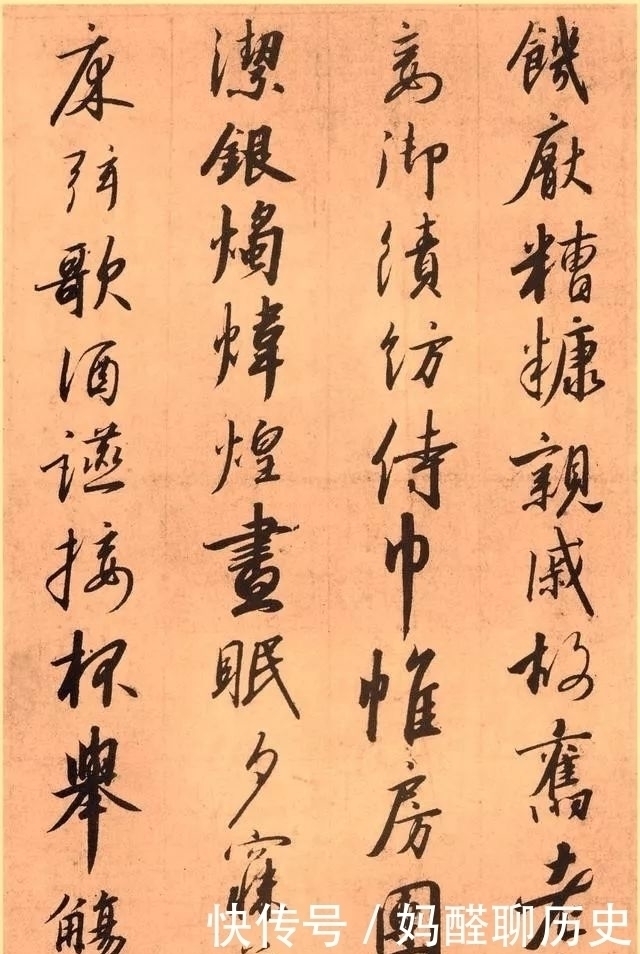 饑厭糟糠親戚故舊老
妾御績紡侍巾帷房
潔銀燭煒煌晝眠夕寐
床弦歌酒讌接杯舉觴
快传号 / 妈醛聊历史